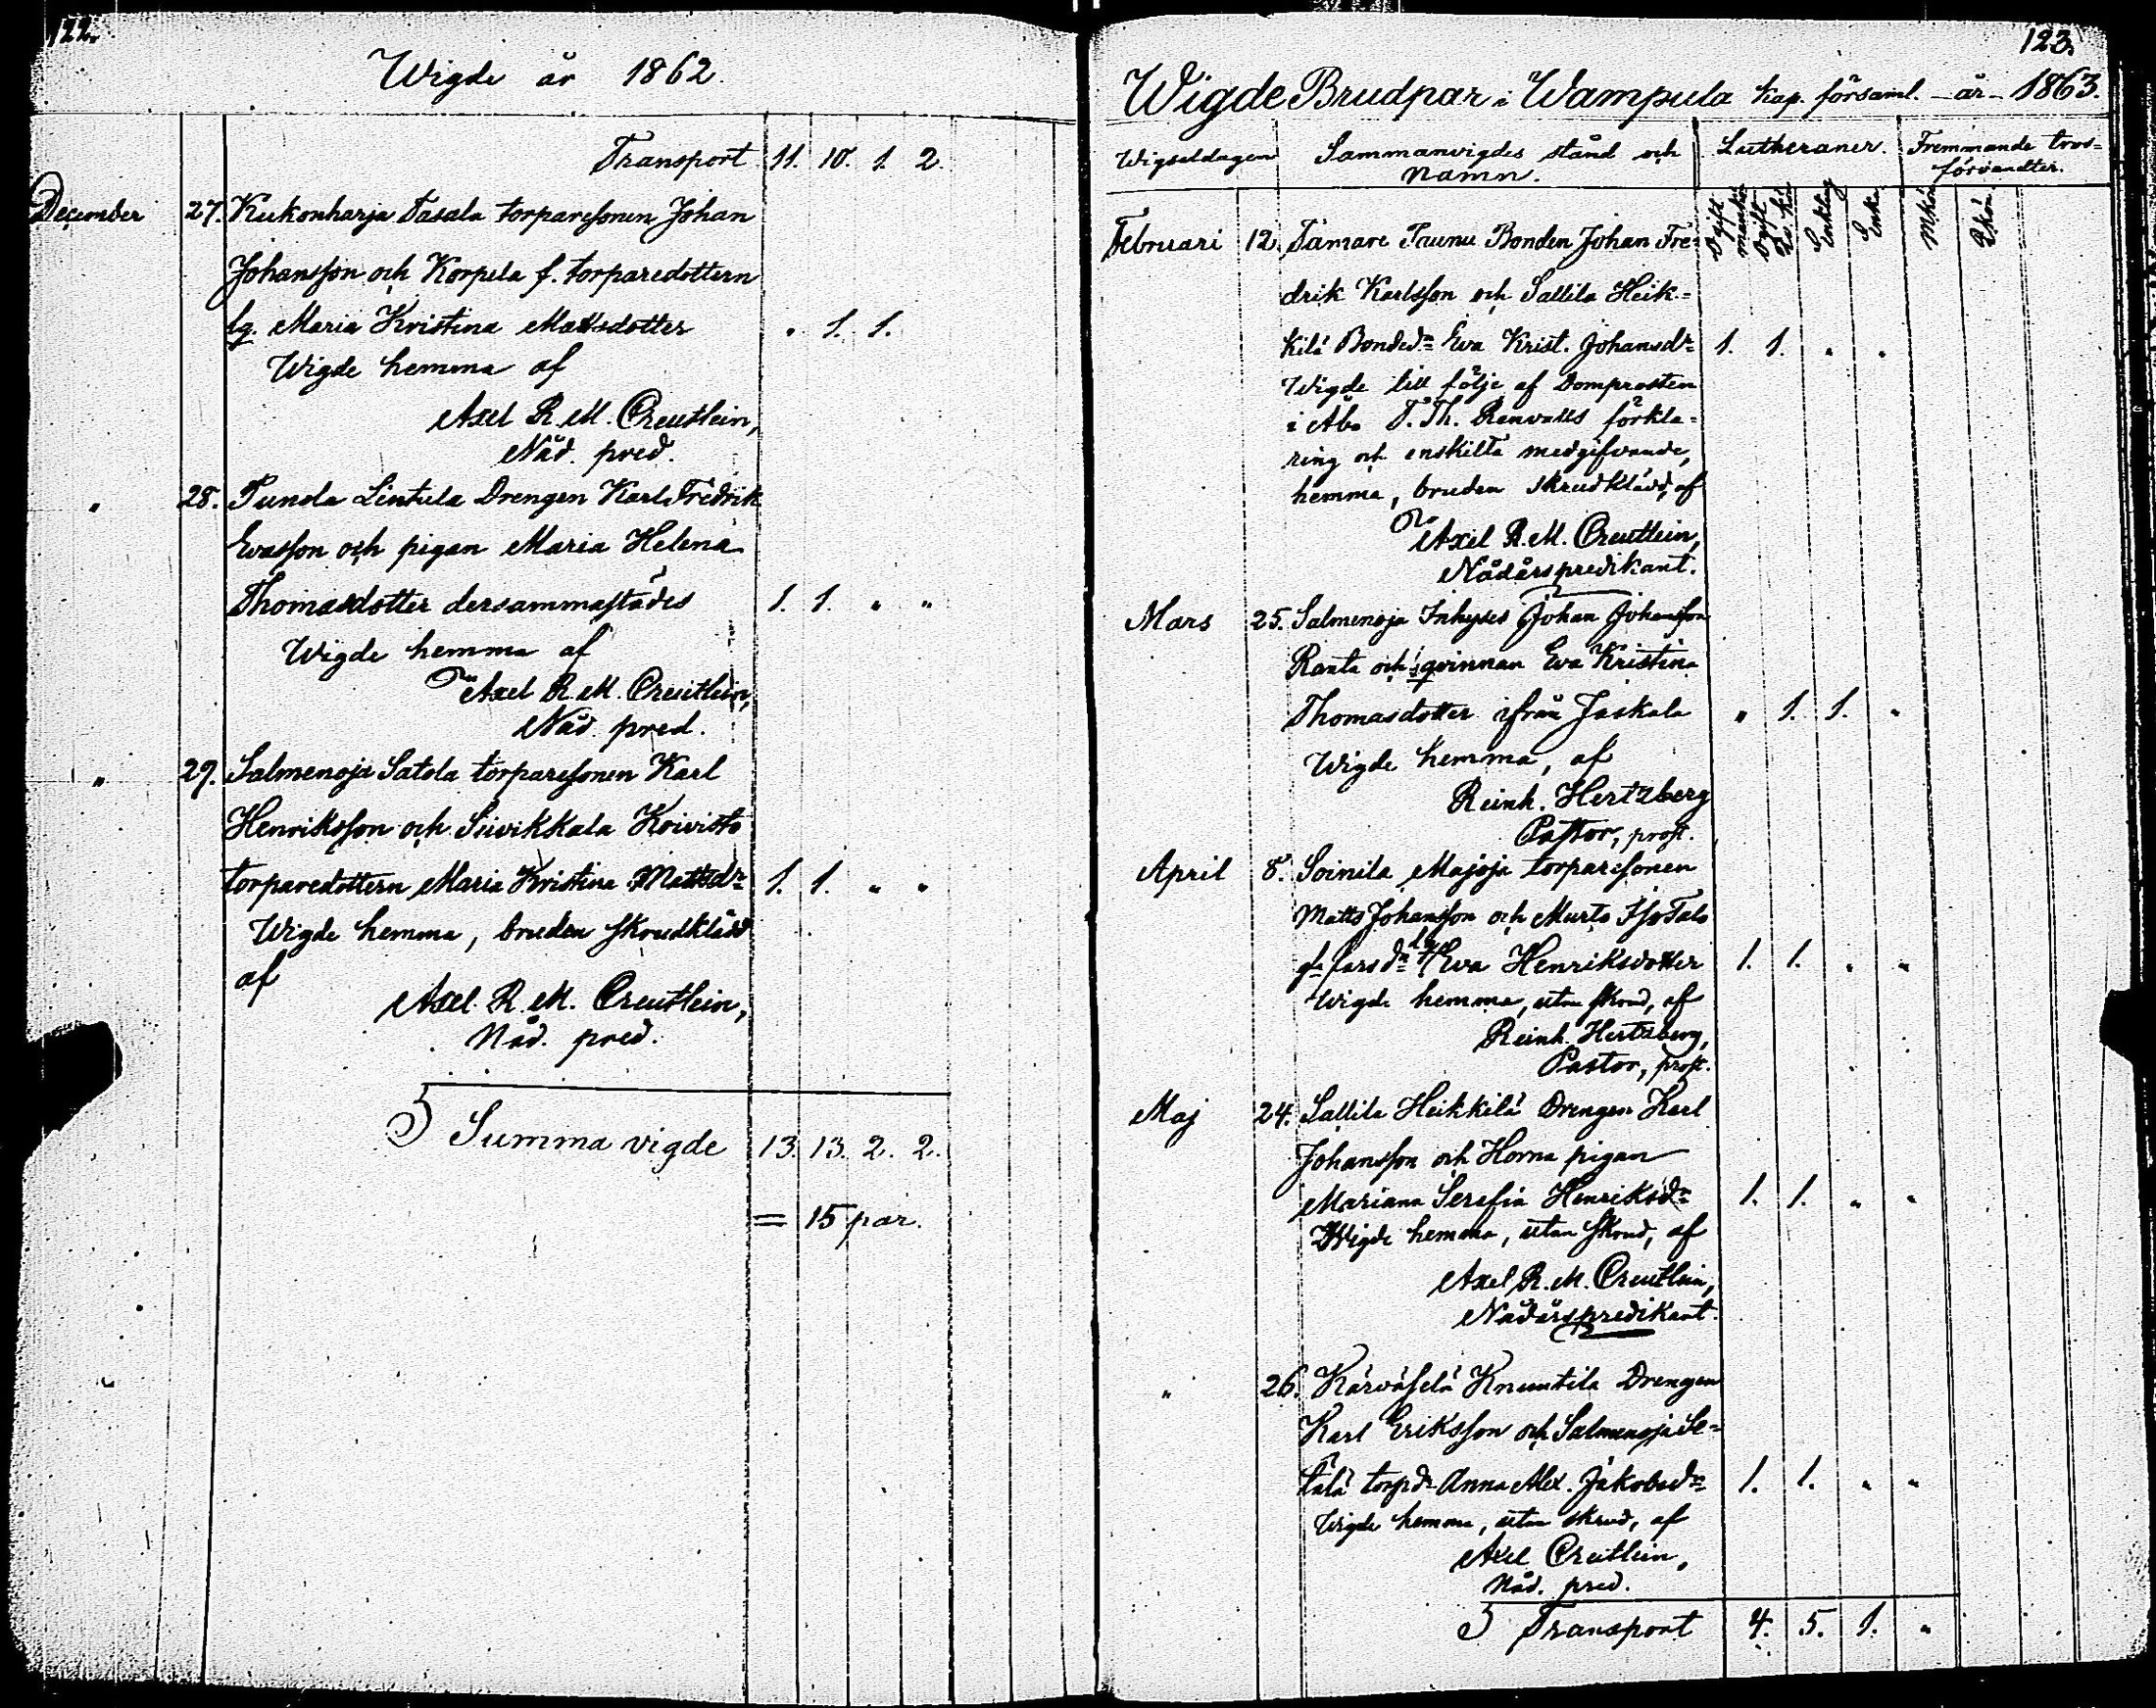 122.
Wigde år 1862.
Transport 11. 10. 1. 2.
December 27. Kukonharja Tasala torparesonen Johan
Johansson och Korpela f. torparedottern
lg. Maria Kristina Mattsdotter " 1. 1.
Wigde hemma af
Axel R. M. Creutlein,
Nåd. pred.
" 28. Punola Lintula Drengen Karl Fredrik
Evasson och pigan Maria Helena
Thomasdotter dersammastädes 1. 1. " "
Wigde hemma af
Axel R. M. Creutlein,
Nåd. pred.
" 29. Salmenoja Satola torparesonen Karl
Henriksson och Sivikkala Koivisto
torparedottern Maria Kristina Mattsdr 1. 1. " "
Wigde hemma, bruden skrudklädd
af
Axel R. M. Creutlein,
Nåd. pred.
Summa vigde 13. 13. 2. 2.
= 15 par.
123.
Wigde Brudpar i Wampula kap. församl. - år - 1863.
Wigseldagen Sammanvigdes stånd och Lutheraner. Fremmande tros=
namn. förvandter.
Ogift mankön Ogift qv. kön Enkling Enka Mkön Qkön
Februari 12. Tamare Paunu Bonden Johan Fre=
drik Karlsson och Sallila Heik=
kilä Bonded:r Eva Krist. Johansdr 1. 1. " "
Wigde till följe af Domprosten
i Åbo T. Th. Renvalls förkla=
ring och enskilta medgifvande,
hemma, bruden skrudklädd, af
Axel R. M. Creutlein,
Nådårspredikant.
Mars 25. Salmenoja Inhyses Johan Johansson
Ranta och qvinnan Eva Kristina
Thomasdotter ifrån Jaskala " 1. 1. "
Wigde hemma, af
Reinh. Hertzberg
Pastor, prost.
April 8. Soinila Majoja torparesonen
Matts Johansson och Murto Iso Talo
lg Eva Henriksdotter 1. 1. " "
Wigde hemma, utan skrud, af
Reinh. Hertzberg,
Pastor, prost.
Maj 24. Sallila Heikkilä Drengen Karl
Johansson och Horna pigan
Mariana Serafia Henriksdr 1. 1. " "
Wigde hemma, utan skrud, af
Axel R. M. Creutlein,
Nådårspredikant.
" 26. Kärväselä Knuutila Drengen
Karl Eriksson och Salmenoja Se=
tälä torpdr Anna Alex. Jakobsdr 1. 1. " "
Wigde hemma, utan skrud, af
Axel Creutlein,
Nåd. pred.
Transport 4. 5. 1. "